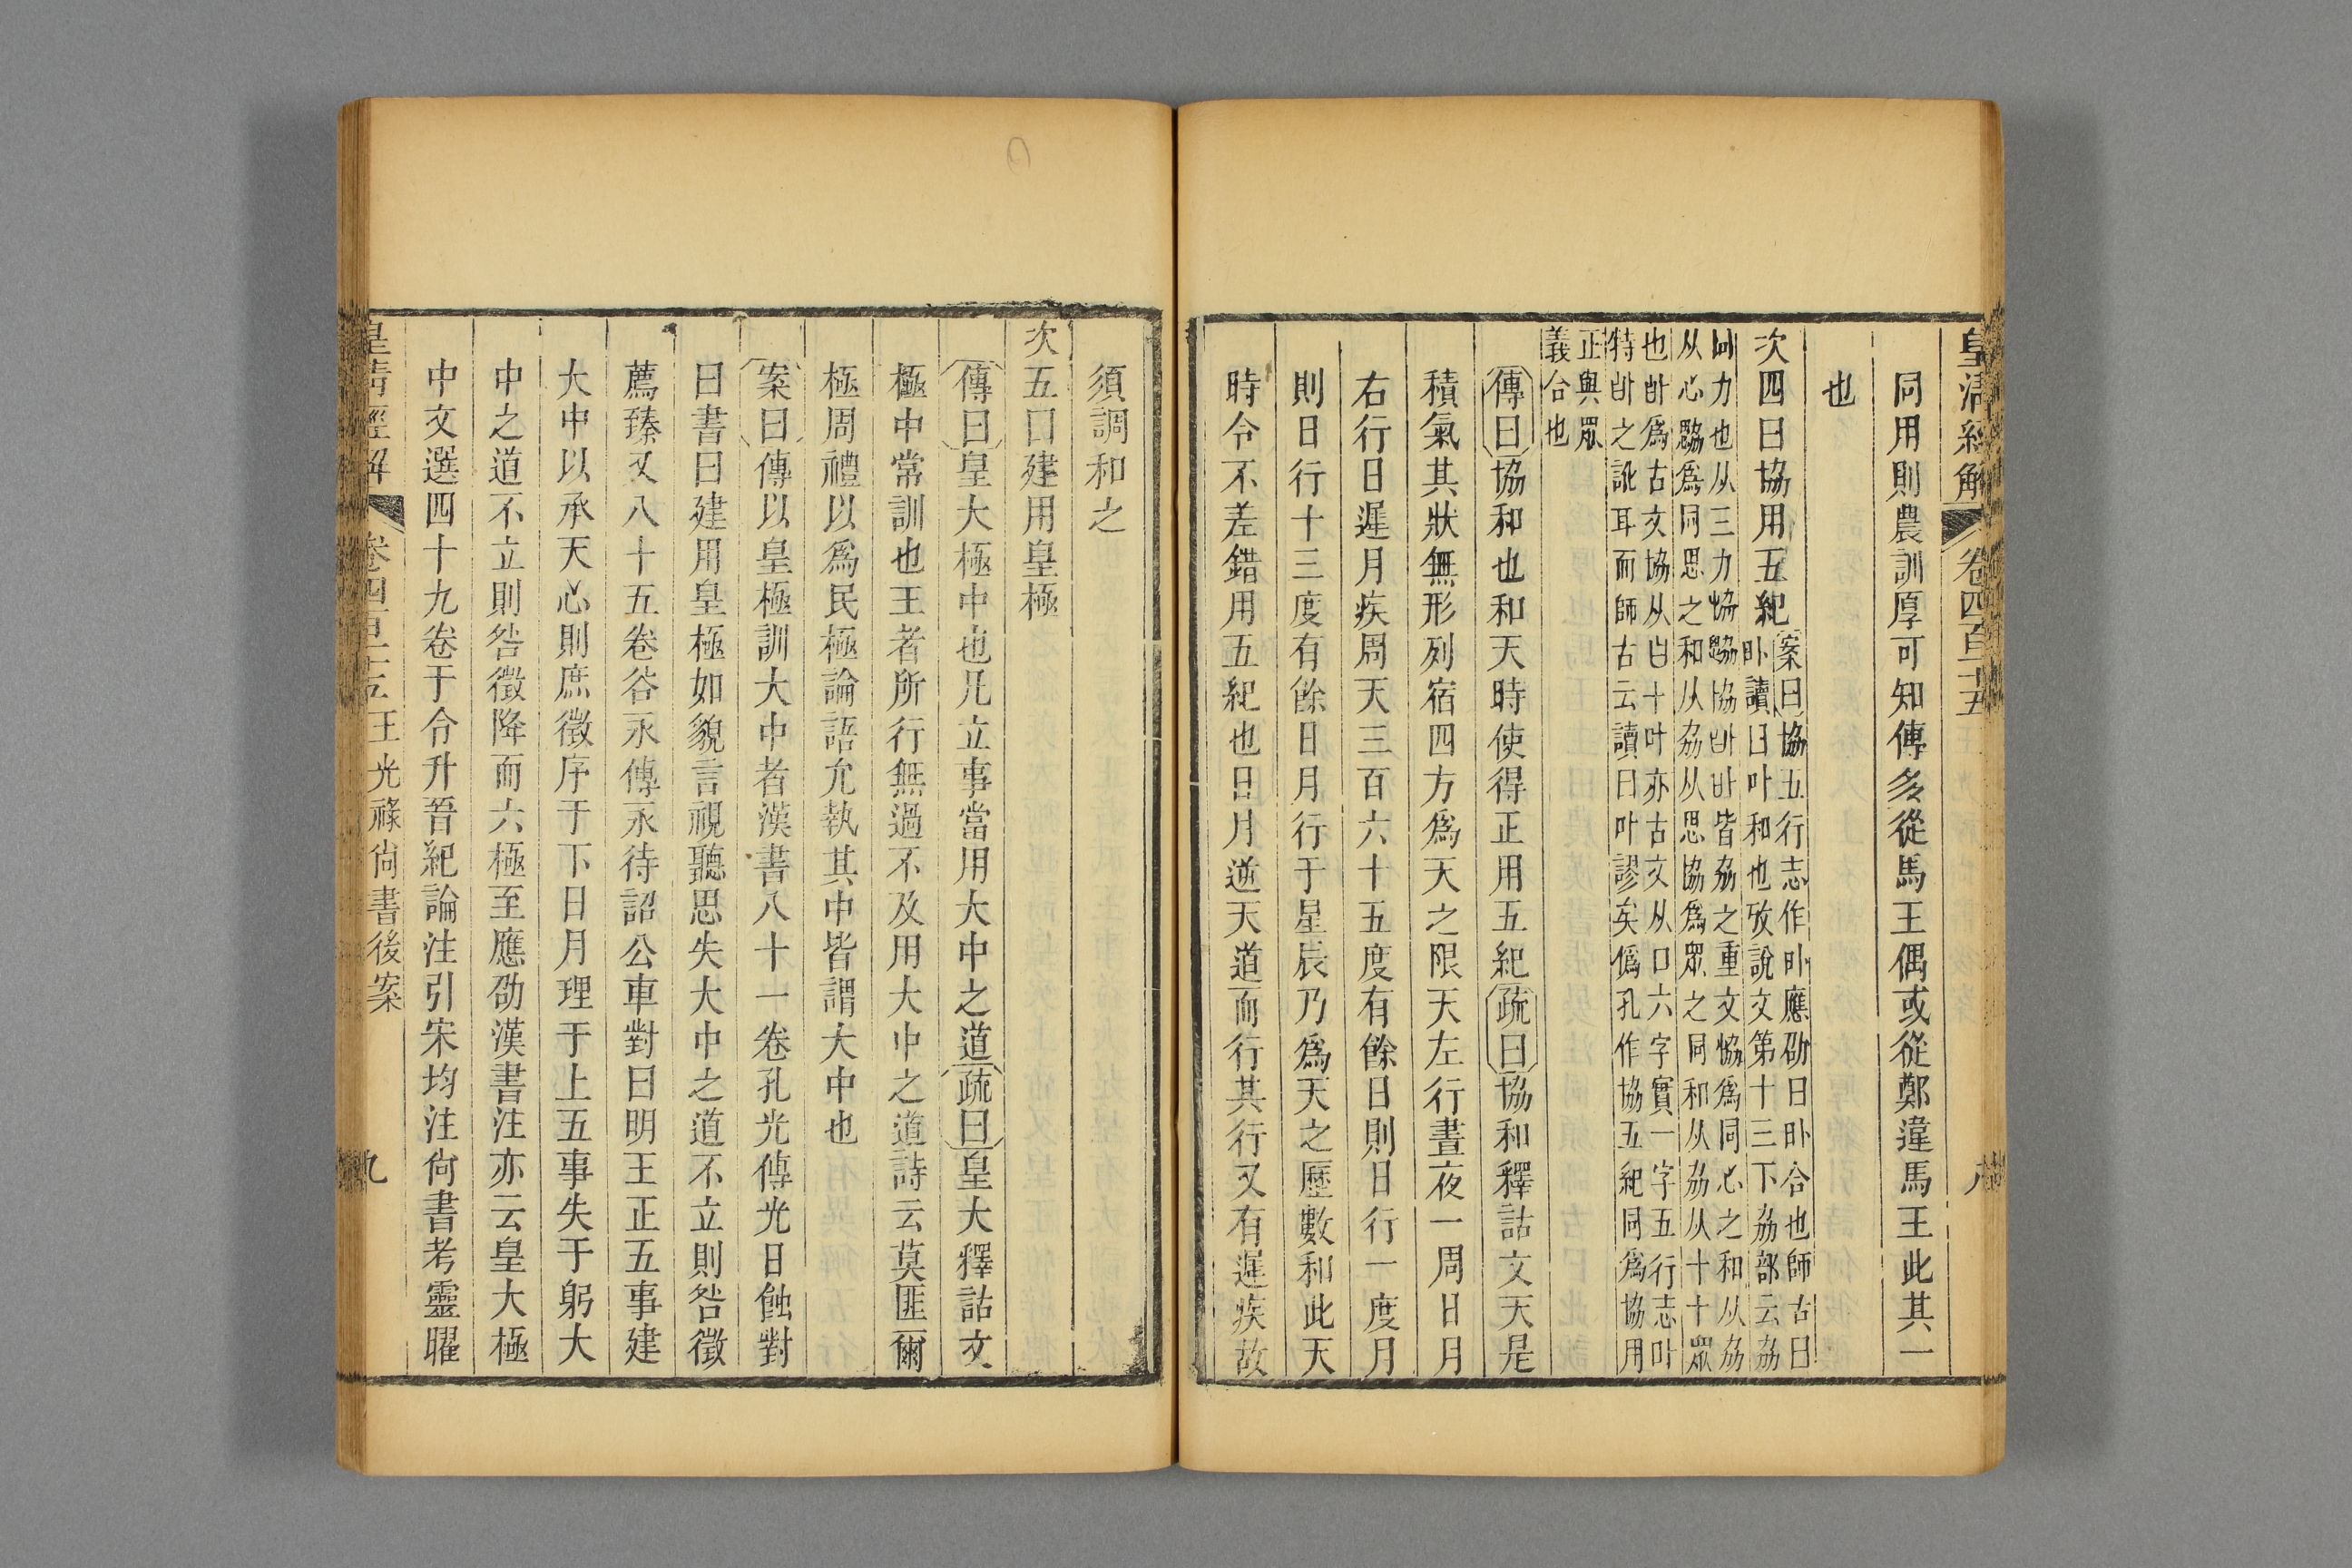 皇清經解 卷四百十五 八
同用則農訓厚可知傳多從馬王偶或從鄭違馬王此其一
也
次四曰協用五紀
案曰協五行志作旪應劭曰旪合也師古曰
旪讀曰叶和也攷說文第十三下劦部云劦
同力也从三力恊勰協旪叶皆劦之重文恊爲同心之和从劦
从心勰爲同思之和从劦从思協爲眾之同和从劦从十十眾
也旪爲古文協从曰十叶亦古文从口六字實一字五行志叶
特旪之訛耳而師古云讀曰叶謬矣僞孔作協五紀同爲協用
正與眾
義合也
傳曰協和也和天時使得正用五紀疏曰協和釋詁文天是
積氣其狀無形列宿四方爲天之限天左行晝夜一周日月
右行日遲月疾周天三百六十五度有餘日則日行一度月
則日行十三度有餘日月行于星辰乃爲天之歷數和此天
時令不差錯用五紀也日月逆天道而行其行又有遲疾故
須調和之
次五曰建用皇極
傳曰皇大極中也凡立事當用大中之道疏曰皇大釋詁文
極中常訓也王者所行無過不及用大中之道詩云莫匪爾
極周禮以爲民極論語允執其中皆謂大中也
案曰傳以皇極訓大中者漢書八十一卷孔光傳光日蝕對
曰書曰建用皇極如貌言視聽思失大中之道不立則咎徵
薦臻又八十五卷谷永傳永待詔公車對曰明王正五事建
大中以承天心則庶徵序于下日月理于上五事失于躬大
中之道不立則咎徵降而六極至應劭漢書注亦云皇大極
中文選四十九卷于令升晉紀論注引宋均注尙書考靈曜
皇清經解 卷四百十五 王光祿尙書後案 九